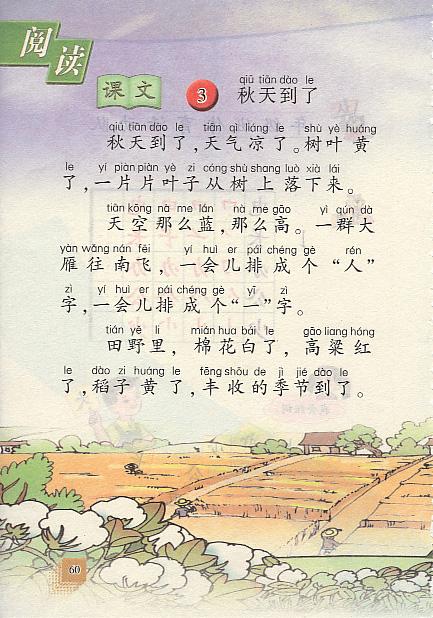 阅读
课文
3
qiū tiān dào le
秋天到了
qiū tiān dào le tiān qì liáng le shù yè huáng
秋天到了,天气凉了。树叶黄
le yí piàn piàn yè zi cóng shù shang luò xià lái
了,一片片叶子从树上落下来。
tiān kōng nà me lán nà me gāo yì qún dà
天空那么蓝,那么高。一群大
yàn wǎng nán fēi yí huì er pái chéng gè rén
雁往南飞,一会儿排成个“人”
zì yí huì er pái chéng gè yī zì
字,一会儿排成个“一”字。
tián yě li mián hua bái le gāo liang hóng
田野里,棉花白了,高粱红
le dào zi huáng le fēng shōu de jì jié dào le
了,稻子黄了,丰收的季节到了。
60